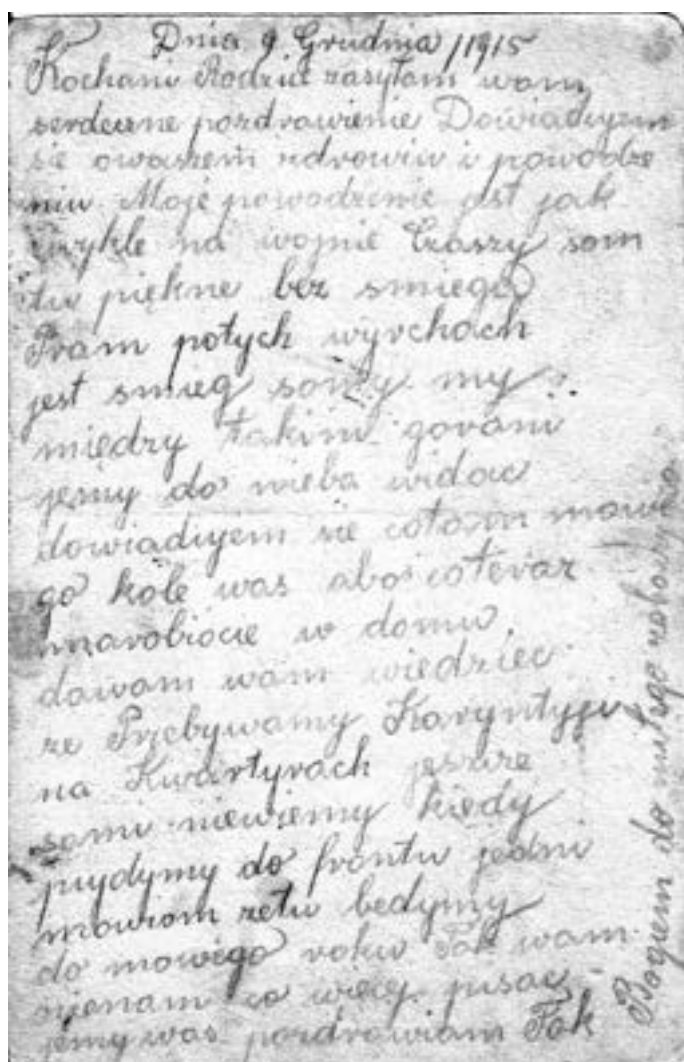 Dnia 9 Grudnia 1915
Kochani Rodzice zasyłam wam
serdeczne pozdrowienie Dowiadujem
sie owaszem zdrowiu i powodze
niu Moje powodzenie jest jak
zwykle na wojnie Czaszy som
tu piękne bez smiegu
Tram potych wyrchach
jest smieg somy my
między takimi gorami
jemy do nieba widać
dowiadujem sie cotam nowe
go kole was abo coteraz
narobiocie w domu
dawam wam wiedziec
ze Przebywamy Karyntyji
na Kwartyrach jeszcze
sami niewiemy kiedy
pujdymy do frontu jedni
mowiom zetu bedymy
do nowego roku Tak wam
nienam co wiency pisać
jemy was pozdrawiam Tak
Bogiem do miłego